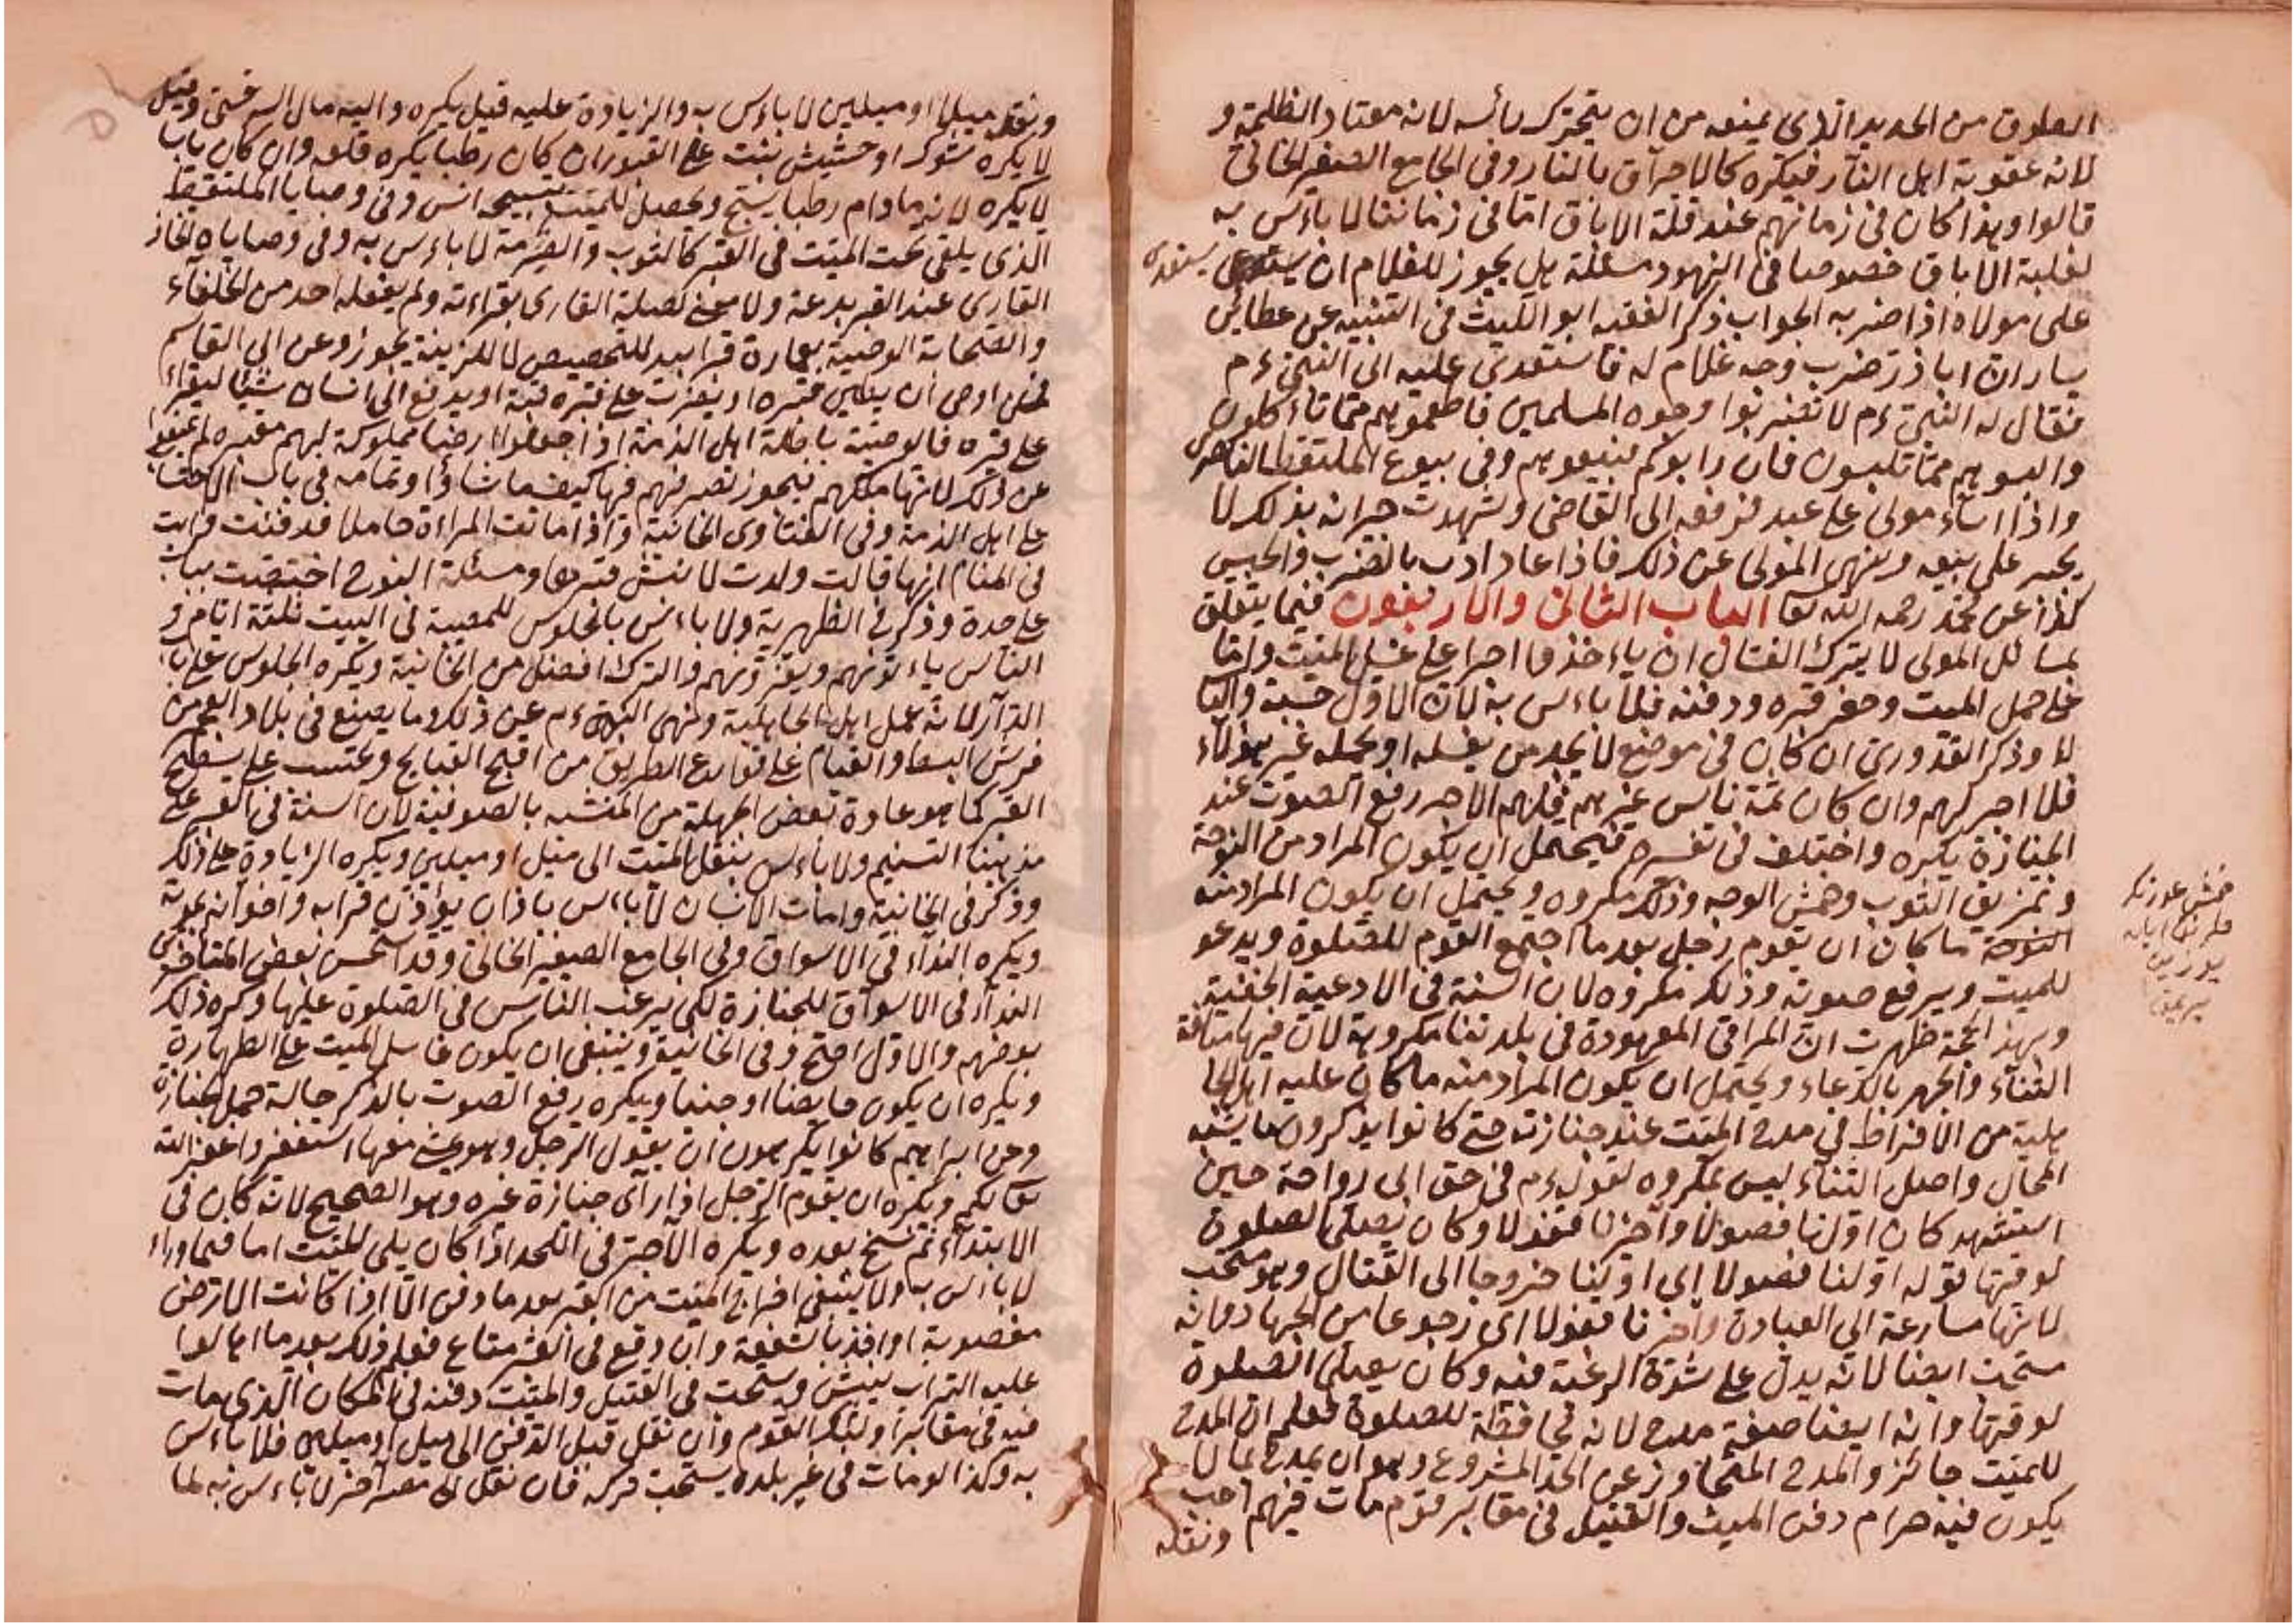 الطوق من الحديد الذى يمنعه من ان يتحرك رأسه لانه معتاد الظلمة و
لانه عقوبة اهل النار فيكره كالاحراق بالنار وفى الجامع الصغير الخانى
قالوا وهذا كان فى زمانهم عند قلة الاباق اما فى زماننا لا باءس به
لغلبة الاباق خصوصا فى الهنود مسئلة هل يجوز للغلام ان يستعدى
على مولاه اذا ضربه الجواب ذكر الفقيه ابو الليث فى التنبيه عن عطاء بن
يسار ان اباذر ضرب وجه غلام له فاستعدى عليه الى النبى ءم
فقال له النبى ءم لا تضربوا وجوه المسلمين فاطعموهم مما تاءكلون
والبسوهم مما تلبسون فان رابوكم فبيعوهم وفى بيوع الملتقط الناصرى
واذا اساء مولى على عبد فرفعه الى القاضى وشهدت جيرانه بذلك لا
يجبر على بيعه وينهى المولى عن ذلك فاذا عاد ادب بالضرب والحبس
كذا عن محمد رحمه الله تعا الباب الثانى والاربعون فيما يتعلق
بمسائل الموتى لا يترك الغسال ان ياءخذوا اجرا على غسل الميت واما
على حمل الميت وحفر قبره ودفنه فلا باءس به لان الاول حسبة والثا
لا وذكر القدورى ان كان فى موضع لا يجد من يغسله او يحمله غير هؤلاء
فلا اجر لهم وان كان ثمة ناس غيرهم فلهم الاجر رفع الصوت عند
الجنازة يكره واختلف فى تفسيره فيحتمل ان يكون المراد من النوحة
وتمزيق الثوب وخمش الوجه وذلك مكروه ويحتمل ان يكون المراد منه
النوحة ما كان ان يقوم رجل بعد ما اجتمع القوم للصلوة ويدعو
للميت ويرفع صوته وذلك مكروه لان السنة فى الادعية الخفية
وبهذ الحجة ظهرت ان المراقى المعهودة فى بلدتنا مكروهة لان فيها
الثناء والجهر بالدعاء ويحتمل ان يكون المراد منه ما كان عليه اهل الجا
هلية من الافراط فى مدح الميت عند جنازته حتى كانوا يذكرون ما يشبه
المحال واصل الثناء ليس بمكروه لقوله ءم فى حق ابى رواحة حين
استشهد كان اولنا فصولا وآخرنا قفولا وكان يصلى الصلوة
لوقتها قوله اولنا فصولا اى اولنا خروجا الى القتال وهو مستحب
لانها مسارعة الى العبادة وآخرنا قفولا اى رجوعا من الجهاد وانه
مستحب ايضا لانه يدل على شدة الرغبة فيه وكان يصلى الصلوة
لوقتها وانه ايضا صفة مدح لانه محافظة للصلوة فعلم ان المدح
للميت جائز والمدح المتجاوز عن الحد المشروع وهو ان يمدح بما لا
يكون فيه حرام دفن الميت والقتيل فى مقابر قوم مات فيهم احب
ونقله
يستعدى
ونقله ميلا او ميلين لا باءس به والزيادة عليه قيل يكره واليه مال السرخسى وقيل
لا يكره شوك او حشيش نبت على القبور ان كان رطبا يكره قلعه وان كان يابسا
لا يكره لانه مادام رطبا يسبح ويحصل للميت بتسبيحه انس وفى وصايا الملتقط
الذى يلقى تحت الميت فى القبر كالثوب والمضربة لا باءس به وفى وصاياه
القارى عند القبر بدعة ولا معنى لصلة القارى بقراءته ولم يفعله احد من الخلفاء
والصحابة الوصية بعمارة قبر ابيه للتحصيص لا للزينة يجوز وعن ابى القاسم
فمن اوصى ان يطين قبره او يضرب على قبره قبة او يدفع الى انسان شيئا ليقراء
على قبره فالوصية باطلة اهل الذمة اذا جعلوا ارضا مملوكة لهم مقبرة لم يمنعوا
عن ذلك لانها ملكهم فيجوز تصرفهم فيها كيف ما شاؤا وتمامه فى باب الاحتسا
على اهل الذمة وفى الفتاوى الخانية واذا ماتت المراءة حاملا فدفنت ورأيت
فى المنام انها قالت ولدت لا ينبش قبرها ومسئلة النوح اختصت بباب
على حدة وذكر فى الظهيرية ولا باءس بالجلوس للمصيبة فى البيت ثلثة ايام و
الناس ياءتونهم ويعزونهم والترك افضل من الخانية ويكره الجلوس على با
الدار لانه عمل اهل الجاهلية ونهى النبى ءم عن ذلك وما يصنع فى بلاد العجم من
فرش البسط والقيام على قوارع الطريق من اقبح القبايح ويحتسب على تسطيح
القبر كما هو عادة بعض الجهلة من المتشبه بالصوفية لان السنة فى القبر على
مذهبنا التسنيم ولا باءس بنقل الميت الى ميل او ميلين ويكره الزيادة على ذلك
وذكر فى الخانية وامات الانسان لا باءس باذان يؤذن قرابه واخوانه بموته
ويكره النداء فى الاسواق وفى الجامع الصغير الخانى وقد استحسن بعض المتاخرين
النداء فى الاسواق للجنازة لكى يرغب الناس فى الصلوة عليها وكره ذلك
بعضهم والاول اصح وفى الخانية وينبغى ان يكون غاسل الميت على الطهارة
ويكره ان يكون حايضا او جنبا ويكره رفع الصوت بالذكر حالة حمل الجنازة
وعن ابراهيم كانوا يكرهون ان يقول الرجل وهو يمشى معها استغفروا غفر الله
تعا لكم ويكره ان يقوم الرجل اذا رآى جنازة غيره وهو الصحيح لانه كان فى
الابتداء ثم نسخ بعده ويكره الآجر فى اللحد اذا كان يلى الميت اما فيما وراء
لا باءس به ولا ينبغى اخراج الميت من القبر بعد ما دفن الا اذا كانت الارض
مغصوبة او اخذ بالشفعة وان وقع فى القبر متاع فعلم ذلك بعد ما اهالوا
عليه التراب ينبش ويستحب فى القتيل والميت دفنه فى المكان الذى مات
فيه فى مقابر اولئك القوم وان نقل قبل الدفن الى ميل او ميلين فلا باءس
به وكذا لو مات فى غير بلده يستحب تركه فان نقل الى مصر آخر لا باءس به لما